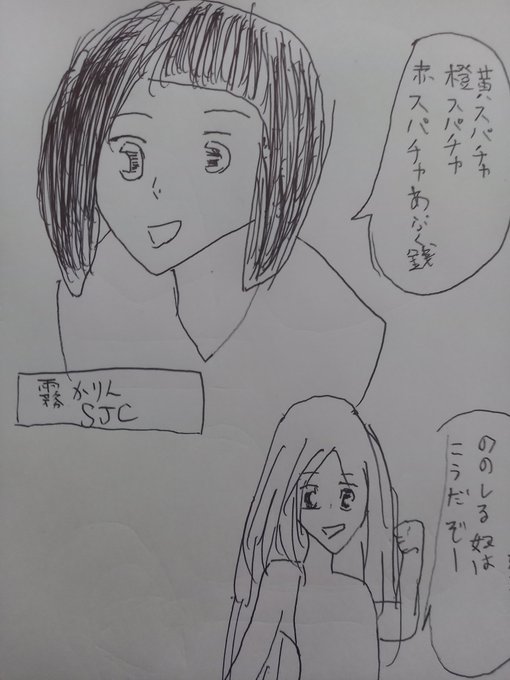 黄スパチャ
橙スパチャ
赤スパチャあぶく銭
霧かりん
SJC
ののしる奴は
こうだぞー